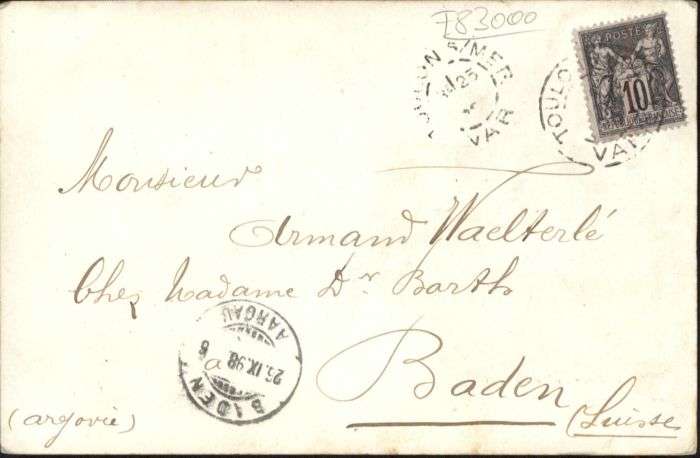 F83000
TOULON S/MER
25
VAR
POSTE
10
TOULO
VAR
Monsieur
Armand Waelterlé
Chez Madame Dr Barth
à
Baden
(Suisse
(argovie)
BADEN
AARGAU
IX.98